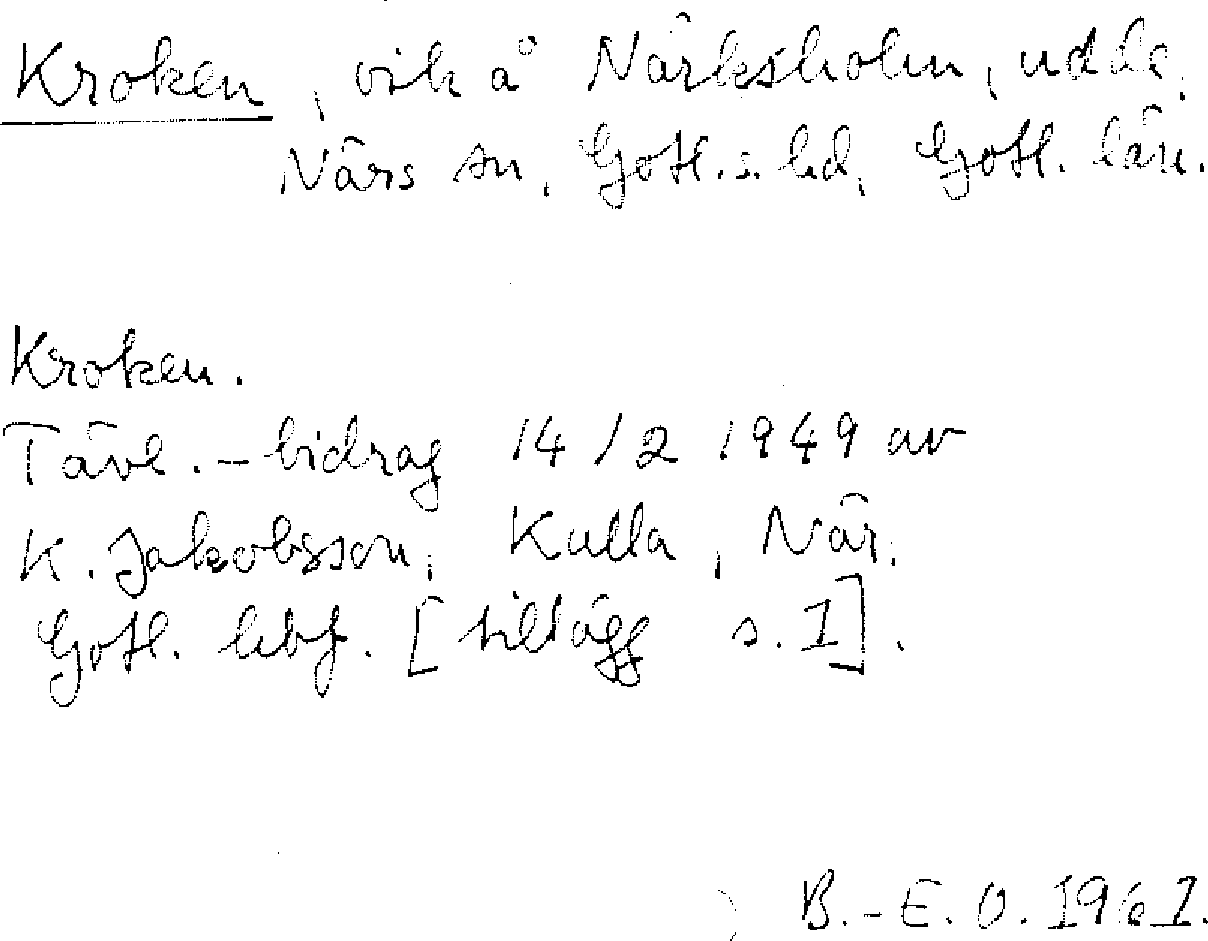 Kroken, vik å Närksholm, udde,
Närs sn, Gotl. s. hd, Gotl. län.
Kroken.
Tävl.-bidrag 14/2 1949 av
K. Jakobsson, Kulla, När,
Gotl. hbf. [tillägg s. 1].
B.-E. O. 1961.